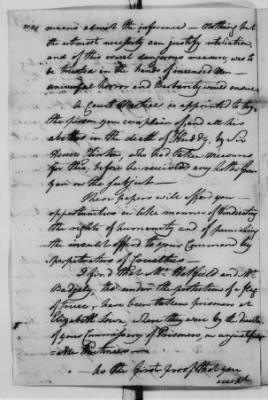 means admit the inference — Nothing but
the utmost necessity can justify retaliation,
and if this cruel dangerous measure, was to
be trusted in the hands of incensed Men —
universal horror and Barbarity would ensue.
A Court Martial is appointed to try
the person you complain of and all his
abettors in the death of Huddy, by Sir
Henry Clinton, who had taken measures
for this, before he received any Letter from
you on the subject —
These papers will afford you —
opportunities in like manner of vindicating
the rights of humanity and of punishing
the insult offered to your Command by
Perpetrators of Cruelties
I find that Mr. Hatfield and Mr.
Badgely, tho' under the protection of a flag
of truce, have been taken prisoners at
Elizabeth Town. Here they were by the direction
of your Commissary of Prisoners
As the first proof that you